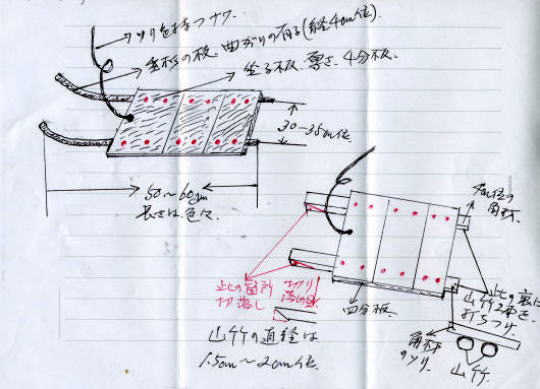 ソリを持つナワ.
曲がりの有る(経4cm位)
坐る板. 厚さ. 4分板.
30~35cm位
50~60cm
長さは色々.
4cm位の
角材.
此の箇所
切落し
切り
四分板.
此の裏に
山竹2本を
打ちつけ.
山竹の直径は
1.5cm~2cm位.
角材
のソリ.
山竹.